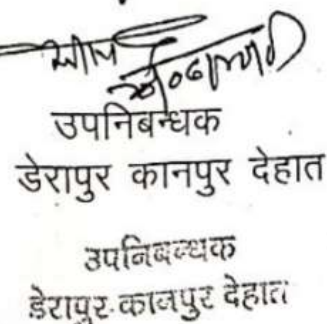 उपनिबन्धक
डेरापुर कानपुर देहात
उपनिबन्धक
डेरापुर कानपुर देहात